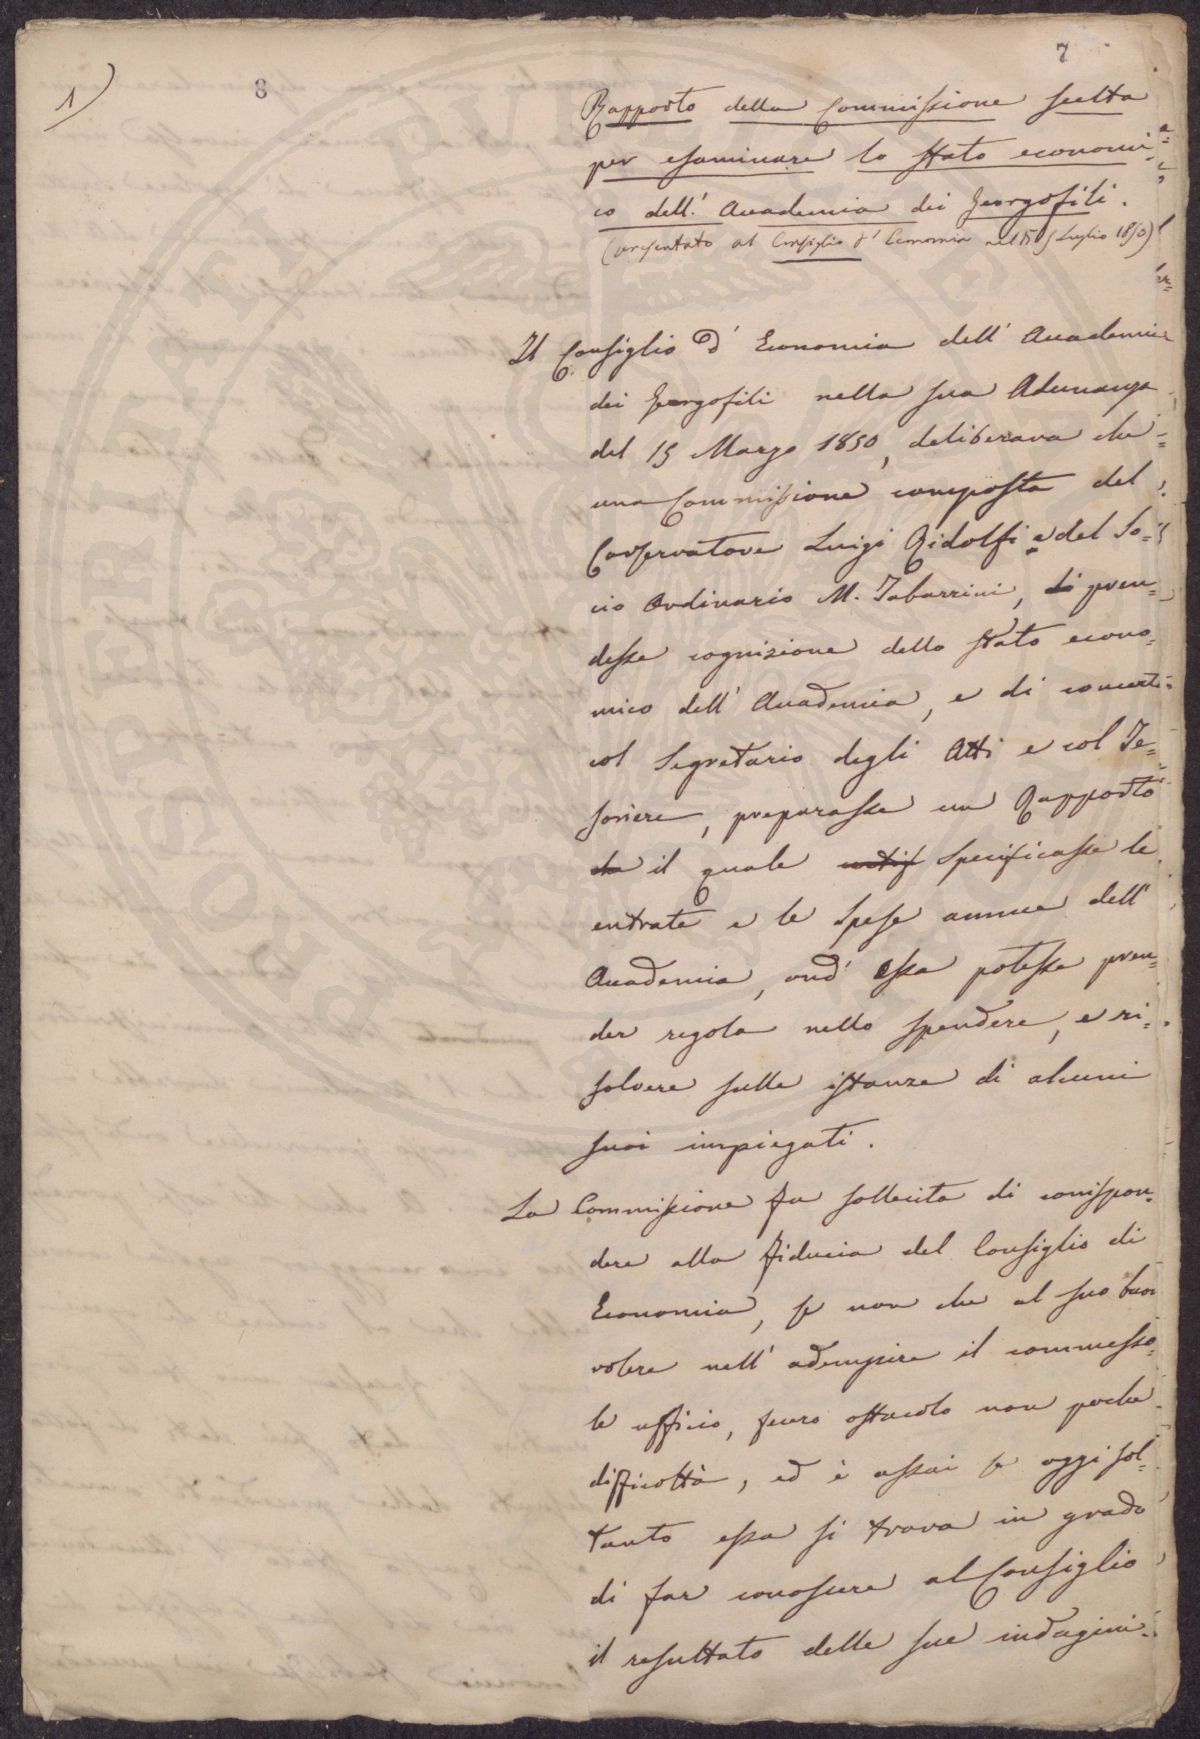 7
1)
8
Rapporto della Commissione scelta
per esaminare lo stato economi-
co dell'Accademia dei Georgofili.
(presentato al Consiglio d'Economia nel dì 5 Luglio 1850)
Il Consiglio d'Economia dell'Accademia
dei Georgofili nella sua Adunanza
del 15 Marzo 1850, deliberava che
una Commissione composta del
Conservatore Luigi Ridolfi e del So=
cio Ordinario M. Tabarrini, pren=
desse cognizione dello stato econo=
mico dell'Accademia, e di concerto
col Segretario degli Atti e col Te=
soriere, preparasse un Rapporto
il quale specificasse le
entrate e le spese annue dell'
Accademia, ond'essa potesse pren=
der regola nello spendere, e ri=
solvere sulle istanze di alcuni
suoi impiegati.
La Commissione fu sollecita di corrispon=
dere alla fiducia del Consiglio di
Economia, se non che al suo buon
volere nell'adempire il commesso=
le ufficio, fecero ostacolo non poche
difficoltà, ed è assai se oggi sol=
tanto essa si trova in grado
di far conoscere al Consiglio
il resultato delle sue indagini.